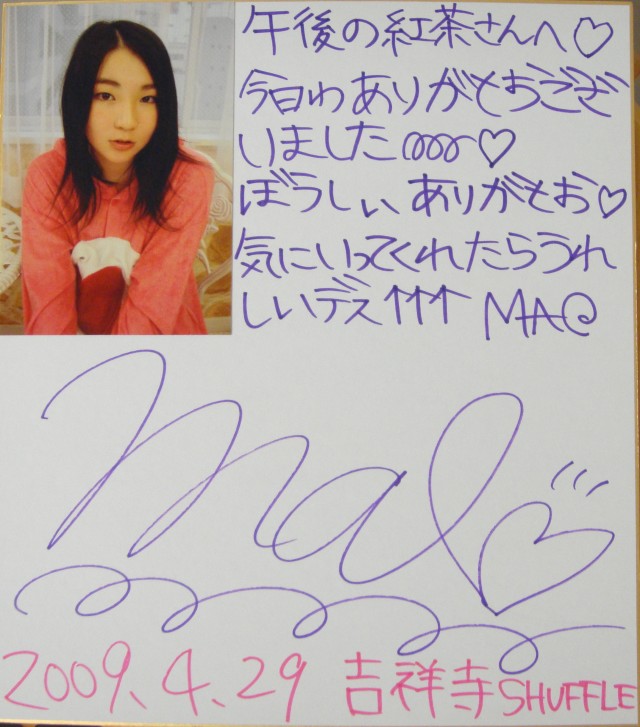 午後の紅茶さんへ♡
今日わありがとおござ
いました♡
ぼうしぃありがとお♡
気にいってくれたらうれ
しいデス↑↑↑ MAO
mao♡
2009.4.29 吉祥寺SHUFFLE